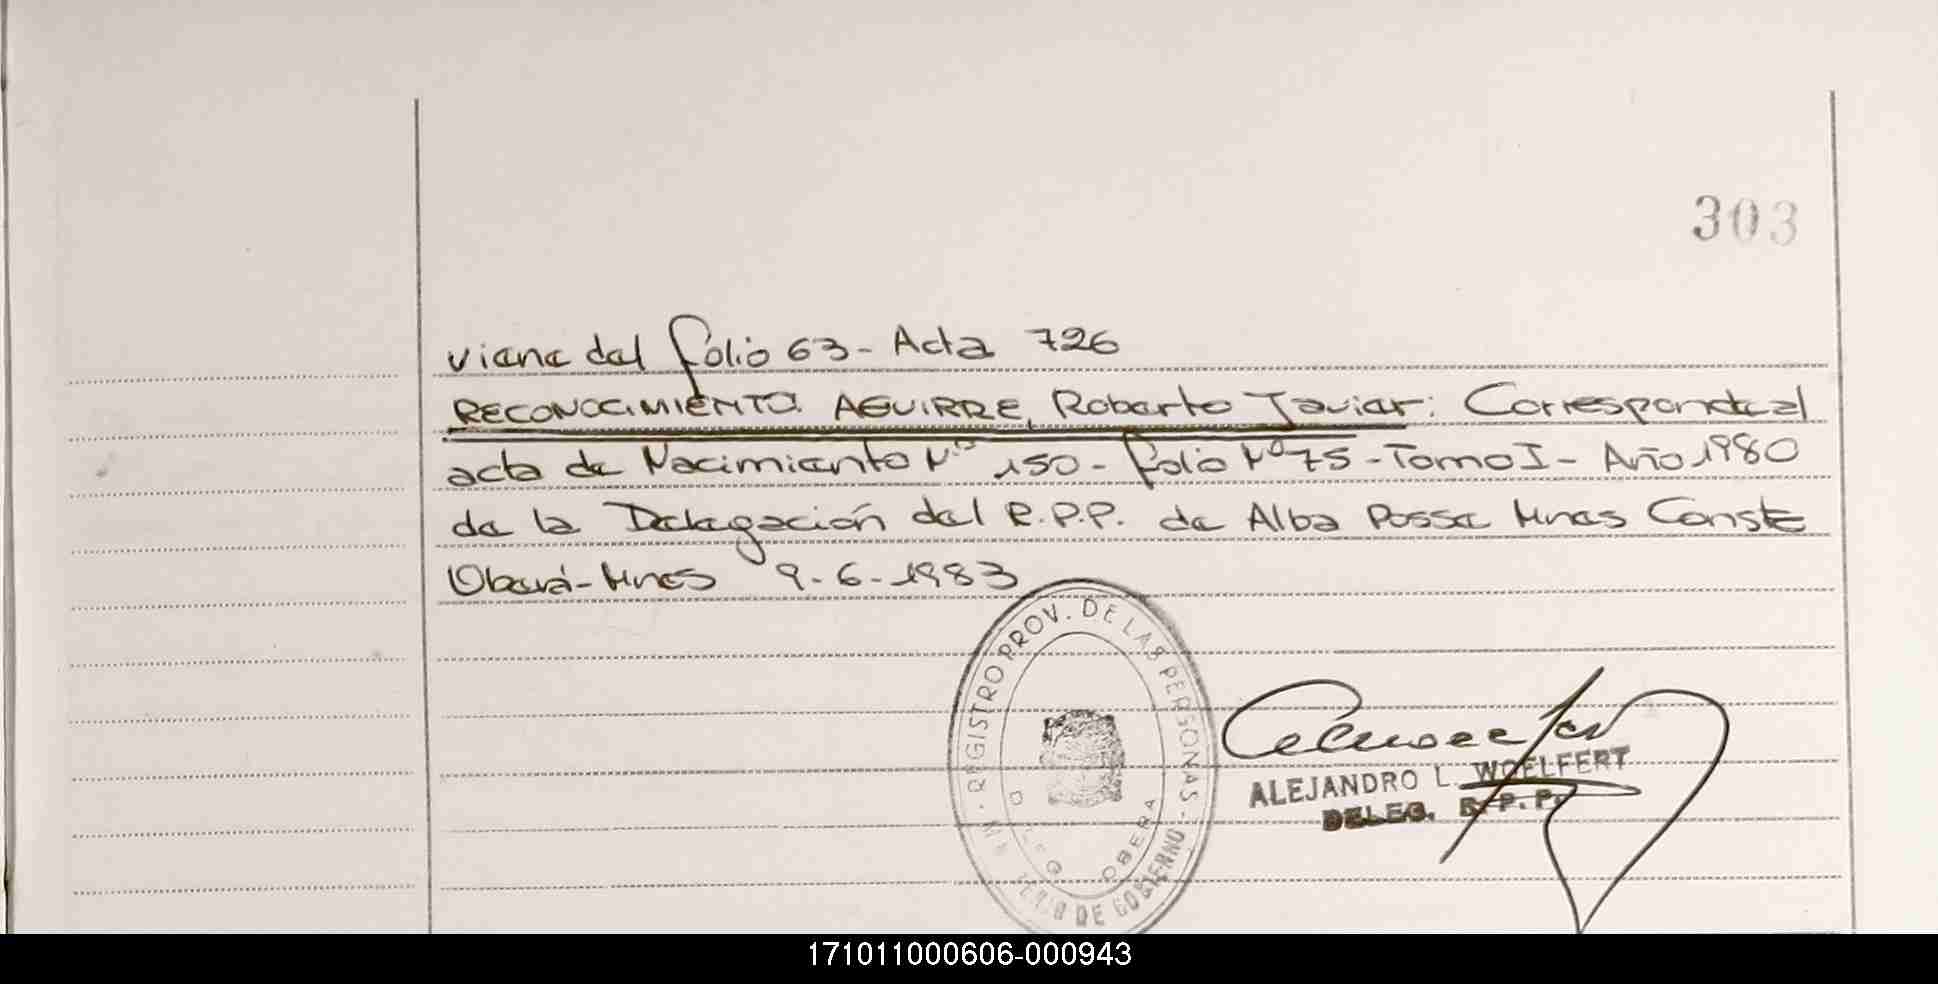 303
viene del folio 63 - Acta 726
RECONOCIMIENTO. AGUIRRE, Roberto Javier: Corresponde al
acta de Nacimiento Nº 150 - folio Nº 75 - Tomo I - Año 1980
de la Delegación del R.P.P. de Alba Posse Mnes Conste
Oberá - Mnes 9-6-1983
REGISTRO PROV. DE LAS PERSONAS - MINISTERIO DE GOBIERNO
DELEG. OBERA
ALEJANDRO L. WOELFERT
DELEG. R.P.P.
171011000606-000943